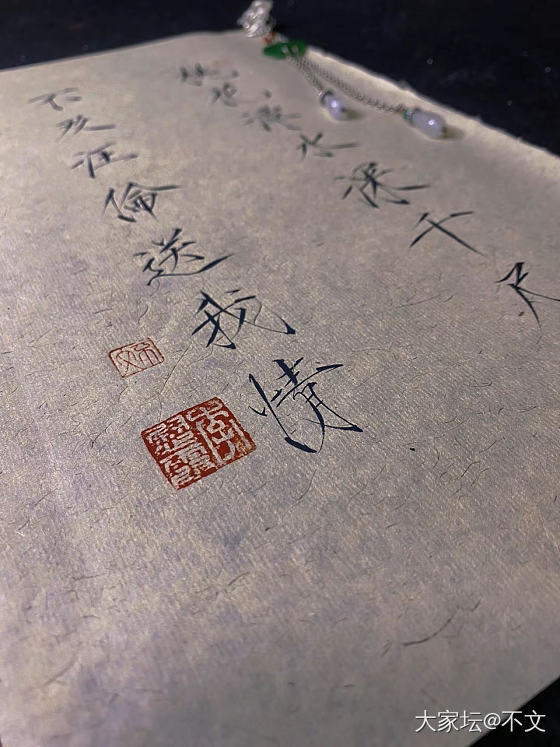 桃花潭水深千尺
不及汪倫送我情
大家坛@不文